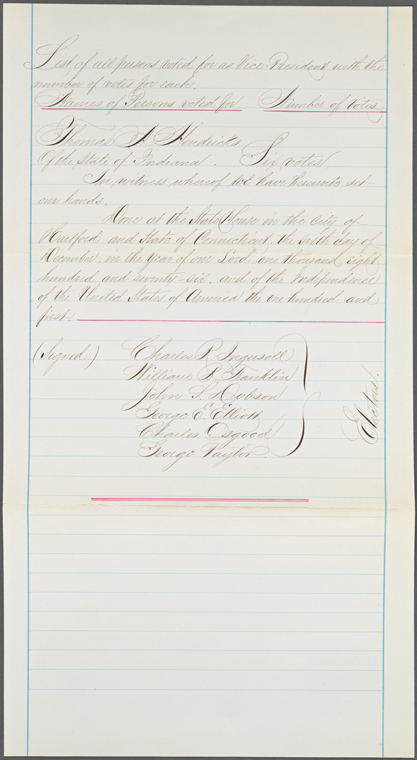 List of all persons voted for as Vice-President with the
number of votes for each.
Names of Persons voted for   Number of votes
Thomas A Hendricks
Of the State of Indiana.   Six votes
In witness whereof we have hereunto set
our hands.
Done at the State House in the City of
Hartford and State of Connecticut, the sixth day of
December, in the year of our Lord one thousand eight
hundred and seventy-six, and of the Independence
of the United States of America the one hundred and
first.
(Signed)   Charles R. Ingersoll
William B. Franklin
John T. Hobson
George E. Elliott
Charles Osgood
George Taylor
Electors.